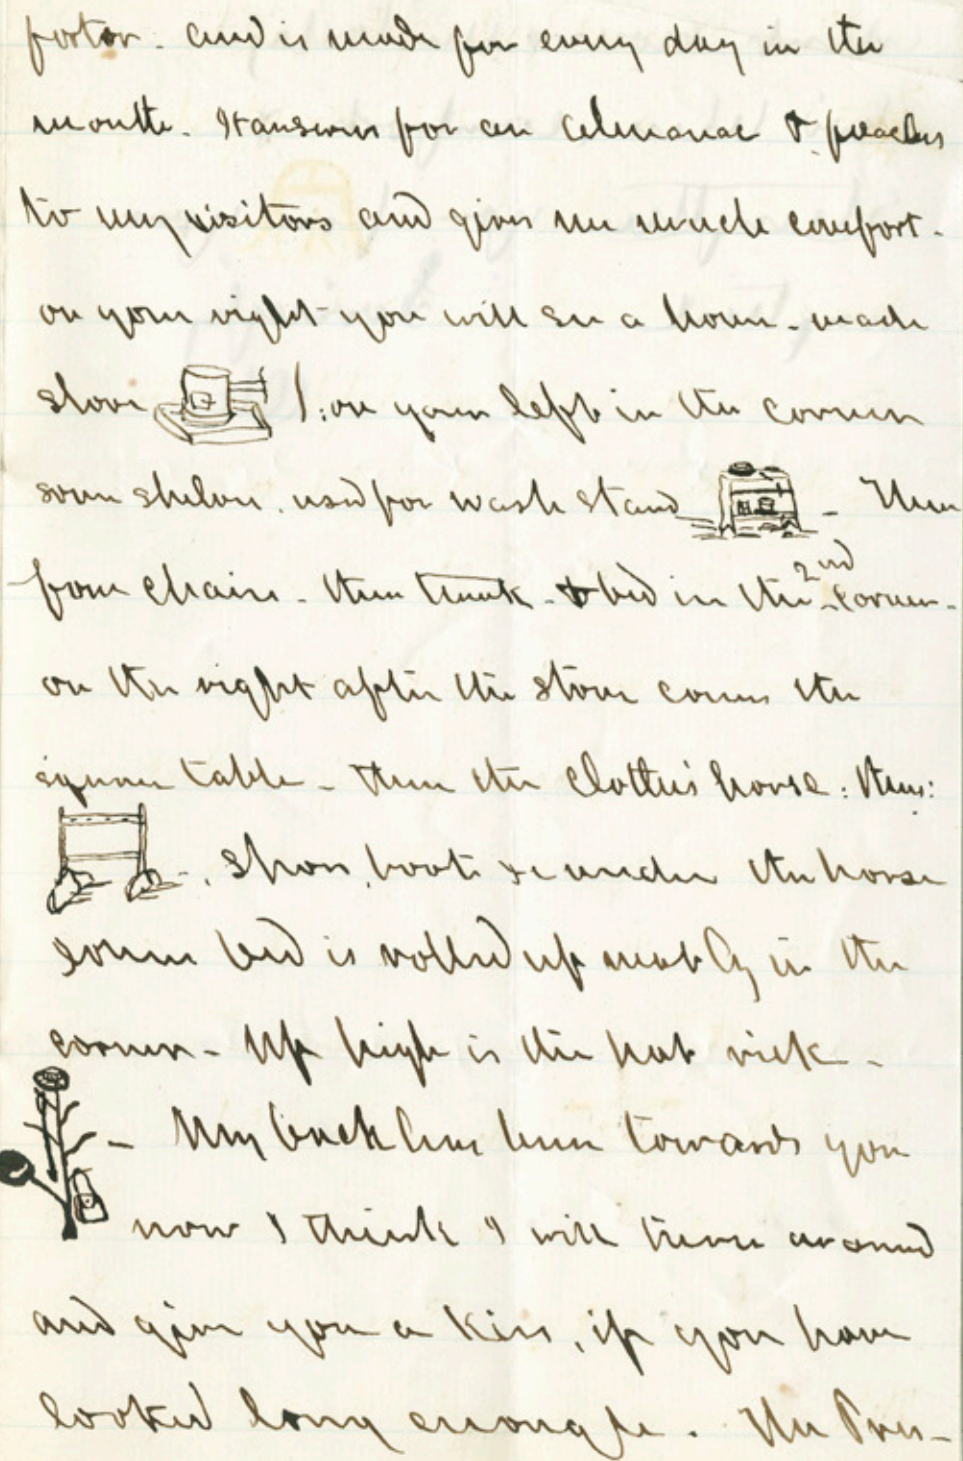 and is made for every day in the
month. It answers for an almanac & preaches
to my visitors and gives me much comfort.
on your right you will see a home-made
stove : on your left in the corner
some shelves. used for wash stand - Then
four chairs - then trunk - & bed in the 2nd corner -
on the right after the stove comes the
square table - then the clothes horse : thus :
. Shoes, boots &c under the horse
bed is rolled up neatly in the
corner - Up high is the hat rick -
- My back has been towards you
now I think I will turn around
and give you a kiss, if you have
looked long enough. The Pres-